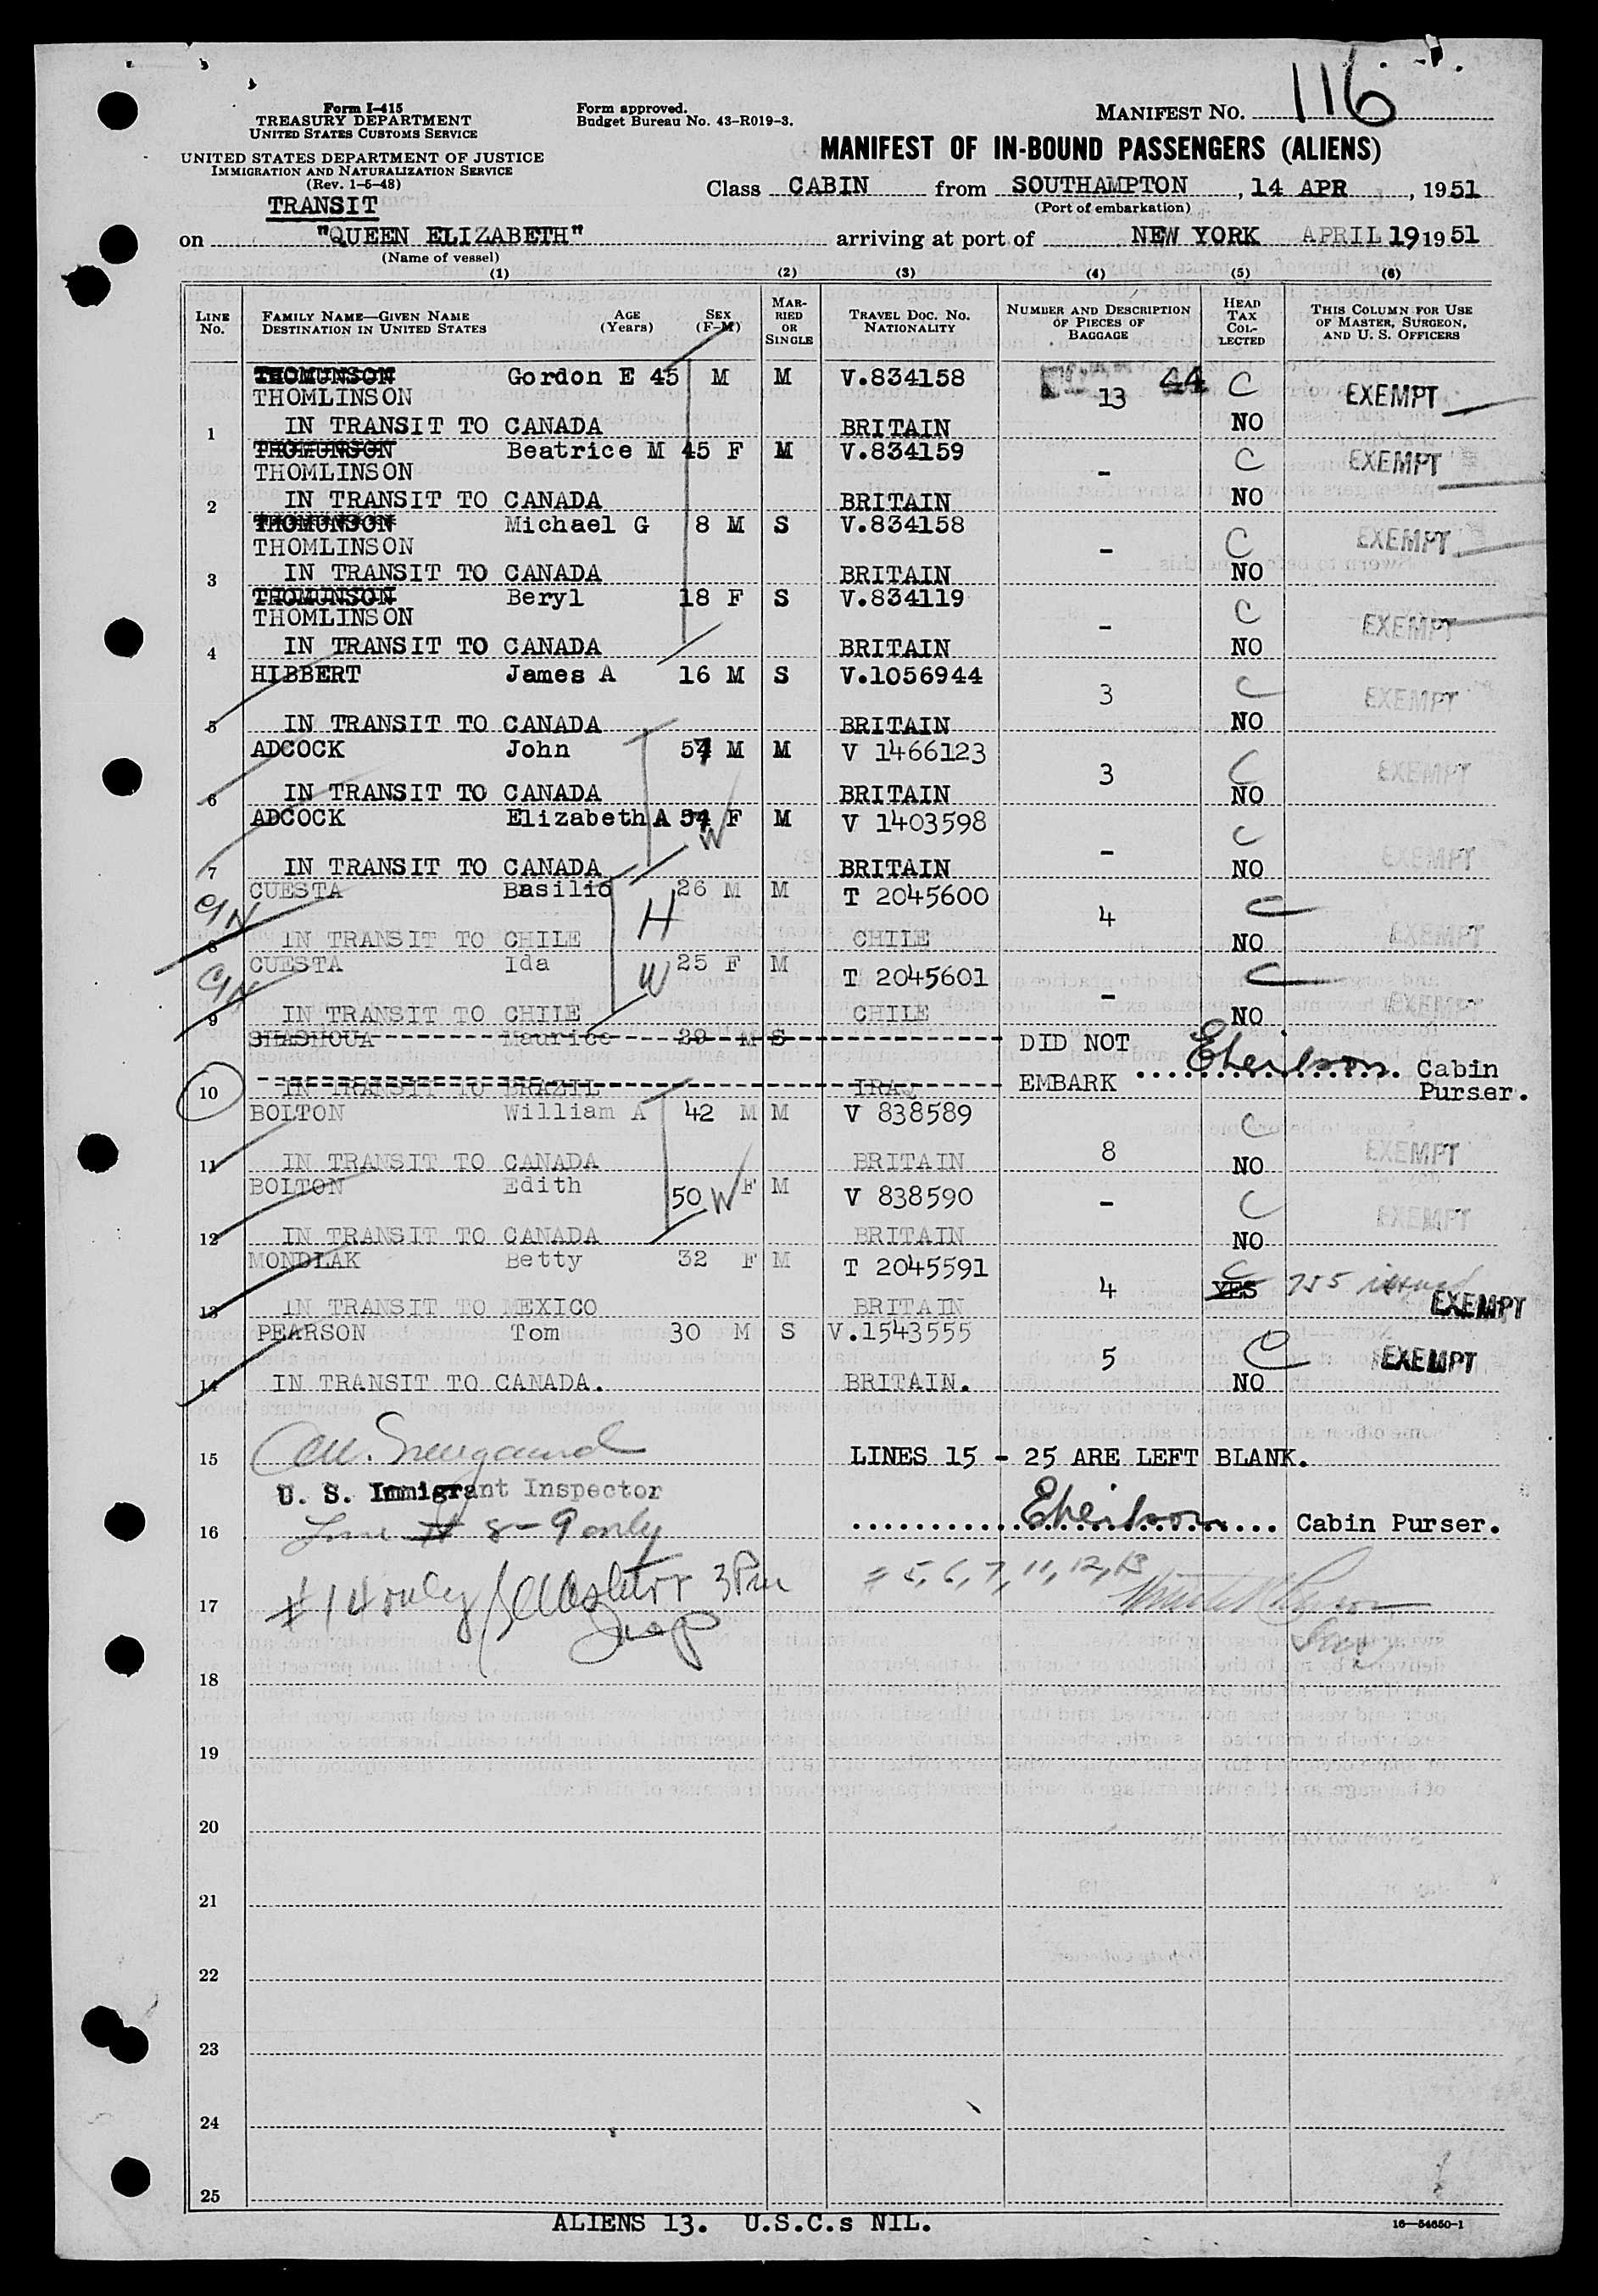 116
Form I-415
TREASURY DEPARTMENT
UNITED STATES CUSTOMS SERVICE
Form approved.
Budget Bureau No. 43-R019-3.
MANIFEST NO.
UNITED STATES DEPARTMENT OF JUSTICE
IMMIGRATION AND NATURALIZATION SERVICE
(Rev. 1-5-48)
MANIFEST OF IN-BOUND PASSENGERS (ALIENS)
TRANSIT
Class CABIN from SOUTHAMPTON, 14 APR, 1951
(Port of embarkation)
on "QUEEN ELIZABETH" arriving at port of NEW YORK APRIL 19 1951
(Name of vessel)
(1) (2) (3) (4) (5) (6)
LINE NO. FAMILY NAME—GIVEN NAME DESTINATION IN UNITED STATES AGE (Years) SEX (F-M) MARRIED OR SINGLE TRAVEL DOC. NO. NATIONALITY NUMBER AND DESCRIPTION OF PIECES OF BAGGAGE HEAD TAX COLLECTED THIS COLUMN FOR USE OF MASTER, SURGEON, AND U. S. OFFICERS
THOMUNSON Gordon E 45 M M V.834158 13 44 C EXEMPT
THOMLINSON
1 IN TRANSIT TO CANADA BRITAIN NO
THOMUNSON Beatrice M 45 F M V.834159 - C EXEMPT
THOMLINSON
2 IN TRANSIT TO CANADA BRITAIN NO
THOMUNSON Michael G 8 M S V.834158 - C EXEMPT
THOMLINSON
3 IN TRANSIT TO CANADA BRITAIN NO
THOMUNSON Beryl 18 F S V.834119 - C EXEMPT
THOMLINSON
4 IN TRANSIT TO CANADA BRITAIN NO
HIBBERT James A 16 M S V.1056944 3 C EXEMPT
5 IN TRANSIT TO CANADA BRITAIN NO
ADCOCK John 57 M M V 1466123 3 C EXEMPT
6 IN TRANSIT TO CANADA BRITAIN NO
ADCOCK Elizabeth A 54 F M V 1403598 - C EXEMPT
W
7 IN TRANSIT TO CANADA BRITAIN NO
CUESTA Basilio 26 M M T 2045600 4 C EXEMPT
H
8 IN TRANSIT TO CHILE CHILE NO
CUESTA Ida 25 F M T 2045601 - C EXEMPT
W
9 IN TRANSIT TO CHILE CHILE NO
SHASHOUA Maurice 29 M S DID NOT
10 IN TRANSIT TO BRAZIL IRAQ EMBARK Cabin Purser.
BOLTON William A 42 M M V 838589 8 C EXEMPT
11 IN TRANSIT TO CANADA BRITAIN NO
BOLTON Edith 50 W F M V 838590 - C EXEMPT
12 IN TRANSIT TO CANADA BRITAIN NO
MONDLAK Betty 32 F M T 2045591 4 C YES 755 issued
13 IN TRANSIT TO MEXICO BRITAIN EXEMPT
PEARSON Tom 30 M S V.1543555 5 C EXEMPT
14 IN TRANSIT TO CANADA. BRITAIN. NO
15 LINES 15 - 25 ARE LEFT BLANK.
U. S. Immigrant Inspector
16 Line # 8-9 only Cabin Purser.
17 #14 only 3 Pm # 5, 6, 7, 11, 12, 13
Insp
18
19
20
21
22
23
24
25
ALIENS 13. U.S.C.s NIL.
16—54650-1